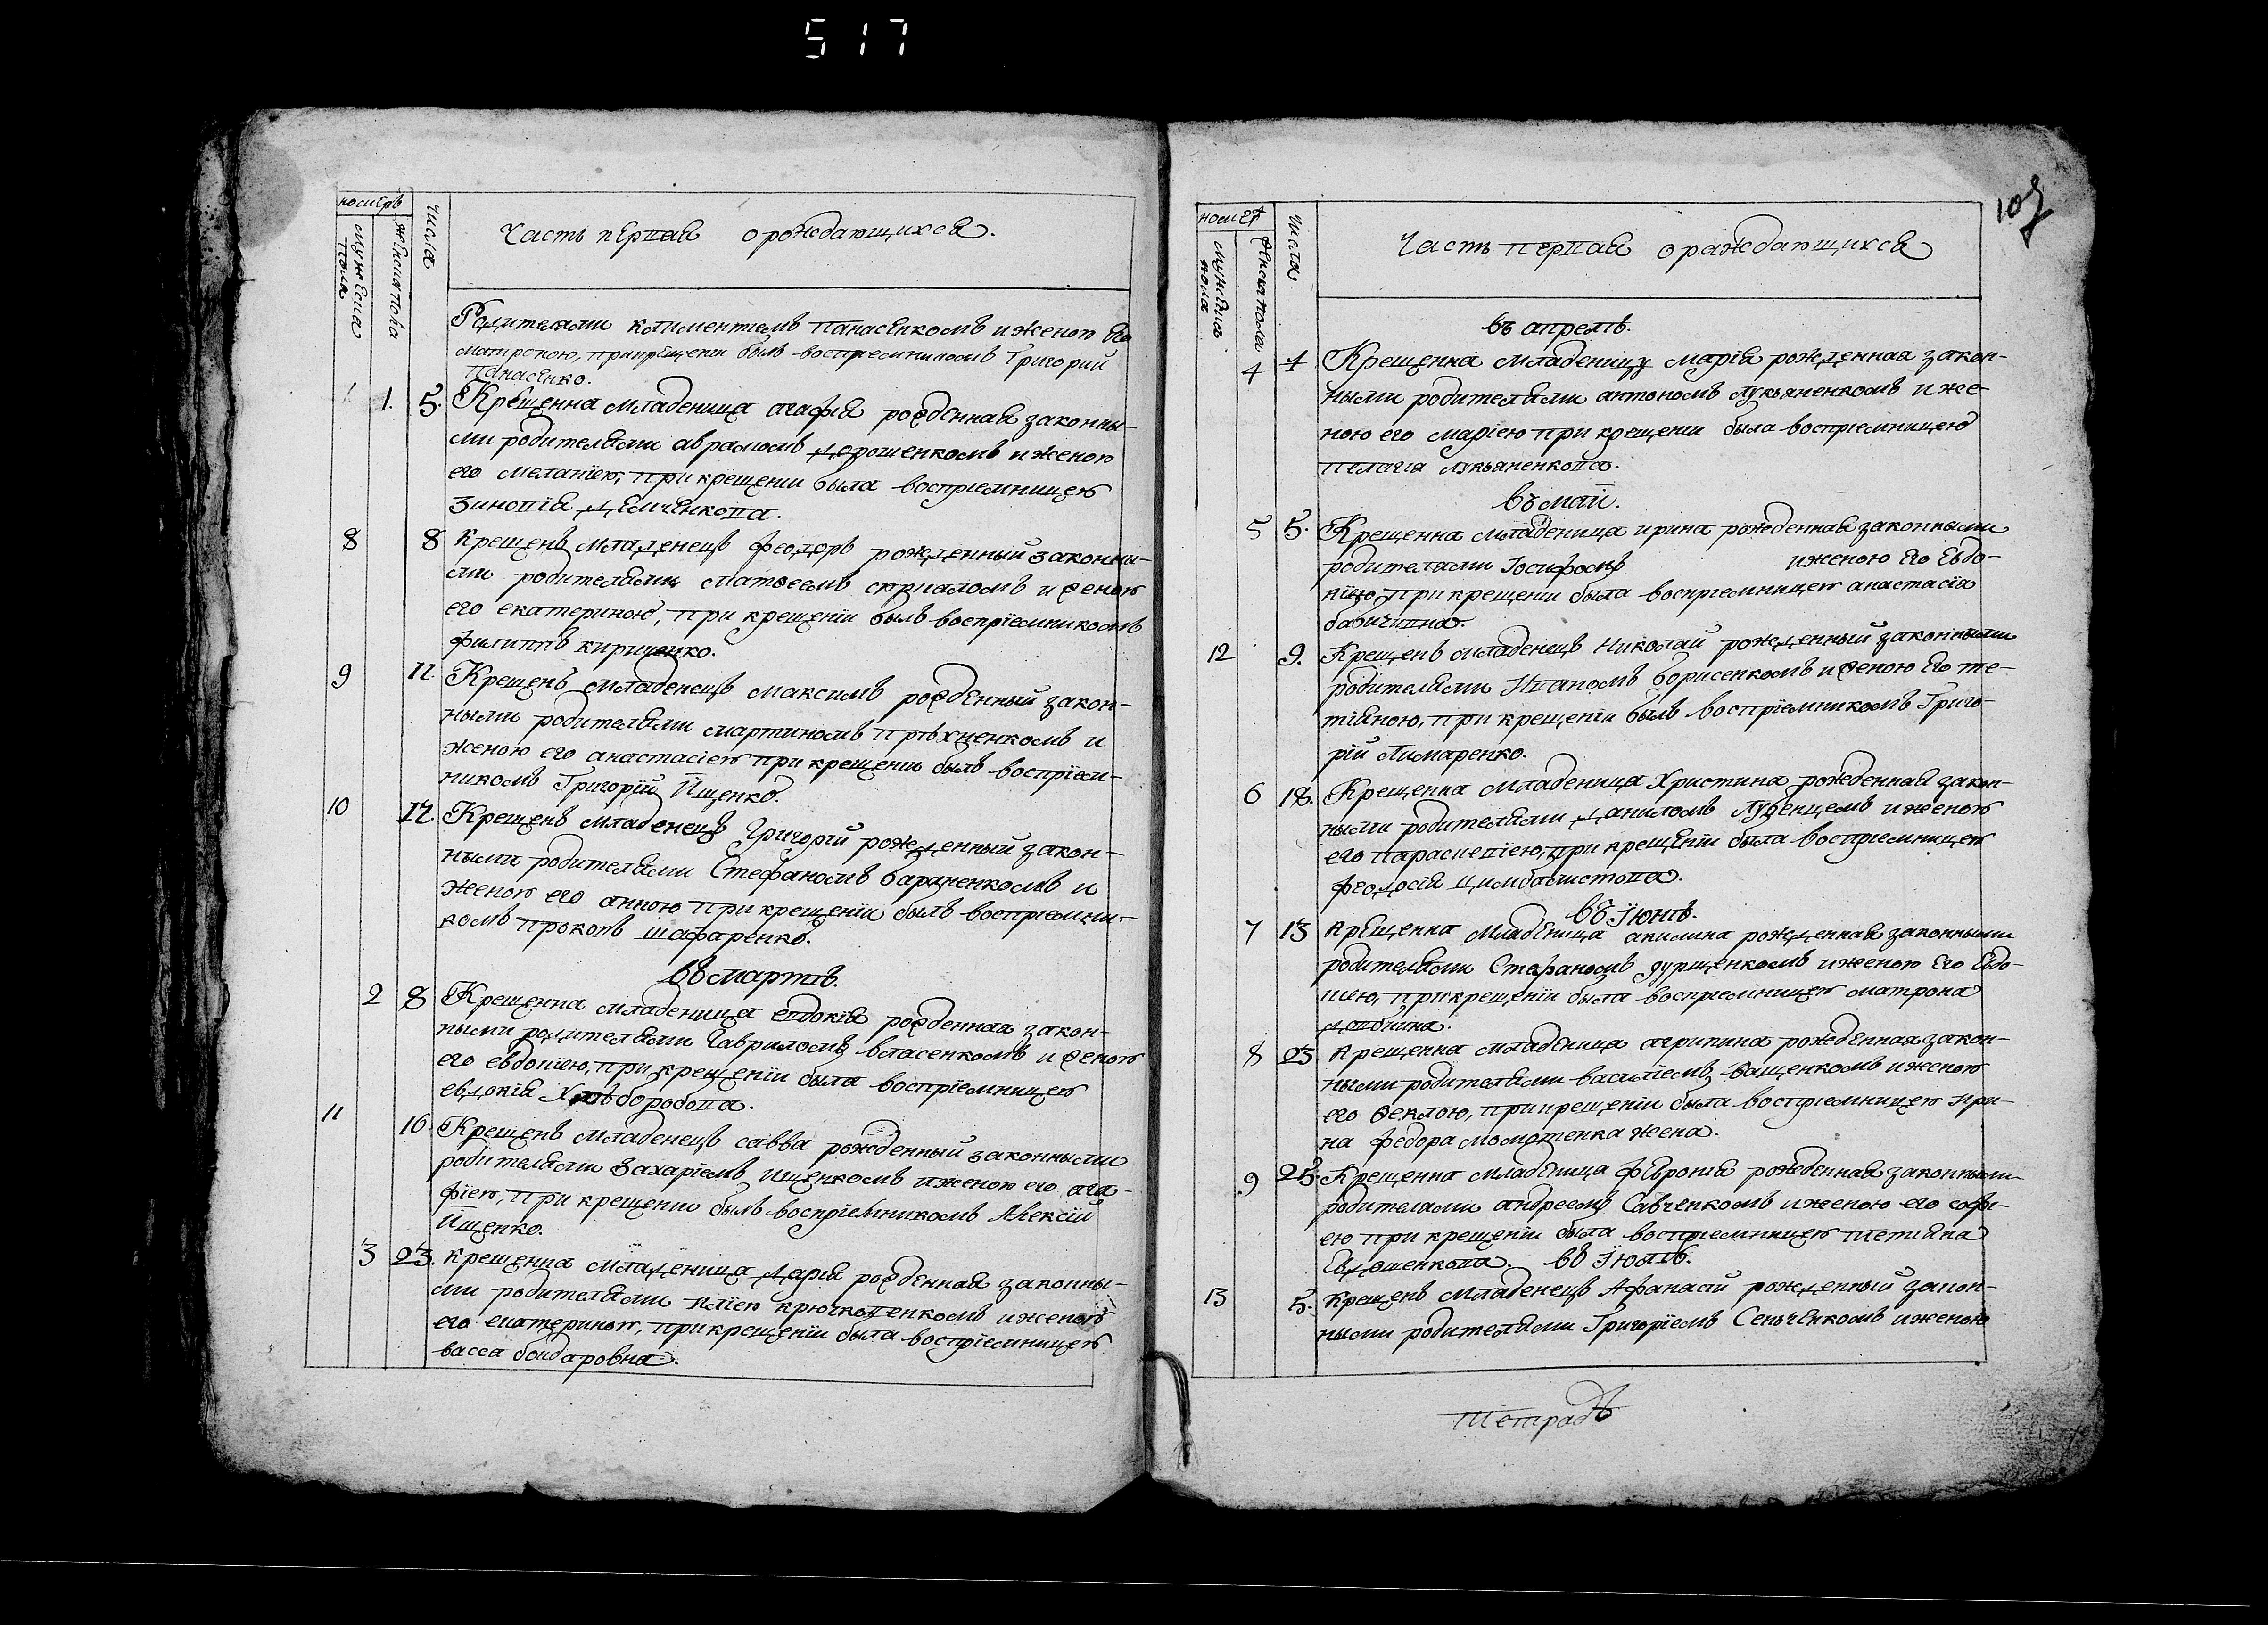 517
номеръ
мужеска пола
женска пола
числа
Часть первая о рождающихся.
Родителями климентиемъ панасенкомъ и женою его
матироною, прикрещении былъ восприемникомъ Григорий
Панасенко.
1. 5. Крещенна младеница агафия рожденная законны-
ми родителями аврамомъ дорошенкомъ и женою
его меланиею, при крещении была восприемницею
зиновия демченкова.
8 8 крещенъ младенецъ феодоръ рожденный законны-
ми родителями матвеемъ и женою
его екатериною, при крещении былъ восприемникомъ
филиппъ кириченко.
9 11. Крещенъ младенецъ максимъ рожденный закон-
ными родителями мартиномъ и
женою его анастасиею при крещении былъ восприем-
никомъ Григорий Ищенко.
10 12. Крещенъ младенецъ Григорий рожденный закон-
ными родителями Стефаномъ и
женою его анною при крещении былъ восприемни-
комъ прокопъ шафаренко.
въ мартѣ.
2 8 Крещенна младеница евдокия рожденная закон-
ными родителями Гавриломъ власенкомъ и женою
его евдокиею, при крещении была восприемницею
евдокия Хлѣборобова.
11 16. Крещенъ младенецъ савва рожденный законными
родителями захариемъ ищенкомъ и женою его ага-
фиею, при крещении былъ восприемникомъ Алексий
Ищенко.
3 23. крещенна младеница дария рожденная законны-
ми родителями илиею крючковенкомъ и женою
его екатериною, при крещении была восприемницею
васса бондаровна.
107
номера
мужеска пола
женска пола
числа
Часть первая о раждающихся
въ апрелѣ.
4 4 Крещенна младеницу мария рожденная закон-
ными родителями антономъ лукьяненкомъ и же-
ною его мариею при крещении была восприемницею
пелагия лукьяненкова.
въ маи.
5 5. Крещенна младеница ирина рожденная законными
родителями Іосифомъ и женою его Евдо-
киею, при крещении была восприемницею анастасия
бабичивна.
12 9. Крещенъ младенецъ Николай рожденный законными
родителями Иваномъ борисенкомъ и женою его те-
тияною, при крещении былъ восприемникомъ Григо-
рий Лимаренко.
6 18. Крещенна младеница Христина рожденная закон-
ными родителями даниломъ Лубенцемъ и женою
его параскевиею, при крещении была восприемницею
феодосия цимбалистова.
въ Іюнѣ.
7 13 крещенна младеница акилина рожденная законными
родителями Стефаномъ и женою его Евдо-
киею, при крещении была восприемницею матрона
довбнина.
8 23. крещенна младеница агрипина рожденная закон-
ными родителями василиемъ ващенкомъ и женою
его феклою, при крещении была восприемницею ири-
на федора момотенка жена.
9 25. Крещенна младеница феврония рожденная законными
родителями андреемъ Савченкомъ и женою его софи-
ею при крещении была восприемницею тетияна
Евдошенкова. въ Іюлѣ.
13 5. крещенъ младенецъ Афанасий рожденный закон-
ными родителями Григориемъ Сенченкомъ и женою
тетрадь